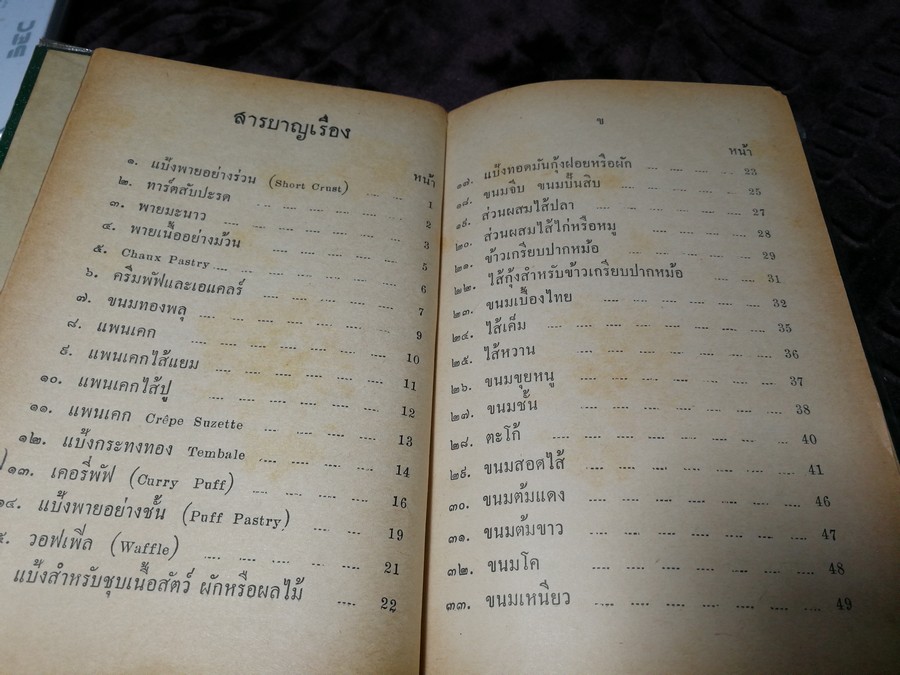 สารบาญเรื่อง
หน้า
๑. แป้งพายอย่างร่วน (Short Crust) .... ... 1
๒. ทาร์ตสับปะรด .... .... .... .... .... 2
๓. พายมะนาว .... .... .... .... .... 3
๔. พายเนื้ออย่างม้วน .... .... .... .... 5
๕. Chaux Pastry .... .... .... .... .... 6
๖. ครีมพัฟและเอแคลร์ .... .... .... .... 7
๗. ขนมทองพลุ .... .... .... .... .... 9
๘. แพนเคก .... .... .... .... .... 10
๙. แพนเคกไส้แยม .... .... .... .... 11
๑๐. แพนเคกไส้ปู .... .... .... .... .... 12
๑๑. แพนเคก Crêpe Suzette .... .... .... 13
๑๒. แป้งกระทงทอง Tembale .... .... .... 14
๑๓. เคอรี่พัฟ (Curry Puff) .... .... .... .... 16
๑๔. แป้งพายอย่างชั้น (Puff Pastry) .... .... 19
๕. วอฟเฟิ่ล (Waffle) .... .... .... .... 21
แป้งสำหรับชุบเนื้อสัตว์ ผักหรือผลไม้ .... 22
ข
หน้า
๑๗. แป้งทอดมันกุ้งฝอยหรือผัก .... .... .... 23
๑๘. ขนมจีบ ขนมปั้นสิบ .... .... .... .... 25
๑๙. ส่วนผสมไส้ปลา .... .... .... .... 27
๒๐. ส่วนผสมไส้ไก่หรือหมู .... .... .... .... 28
๒๑. ข้าวเกรียบปากหม้อ .... .... .... .... 29
๒๒. ไส้กุ้งสำหรับข้าวเกรียบปากหม้อ .... .... .... 31
๒๓. ขนมเบื้องไทย .... .... .... .... 32
๒๔. ไส้เค็ม .... .... .... .... .... 35
๒๕. ไส้หวาน .... .... .... .... .... 36
๒๖. ขนมขุยหนู .... .... .... .... .... 37
๒๗. ขนมชั้น .... .... .... .... .... 38
๒๘. ตะโก้ .... .... .... .... .... 40
๒๙. ขนมสอดไส้ .... .... .... .... .... 41
๓๐. ขนมต้มแดง .... .... .... .... .... 46
๓๑. ขนมต้มขาว .... .... .... .... .... 47
๓๒. ขนมโค .... .... .... .... .... 48
๓๓. ขนมเหนียว .... .... .... .... .... 49